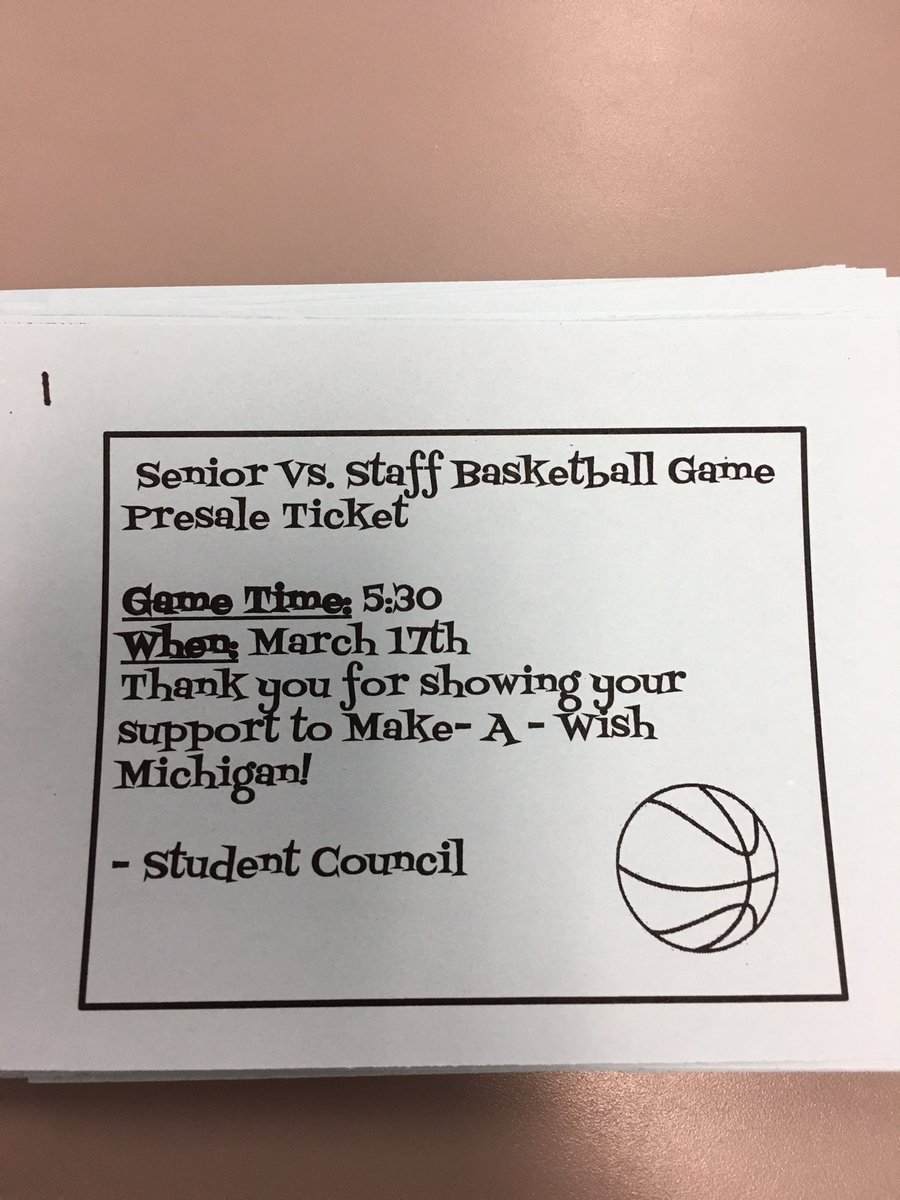 Senior Vs. Staff Basketball Game
Presale Ticket
Game Time: 5:30
When: March 17th
Thank you for showing your
support to Make- A - Wish
Michigan!
- Student Council